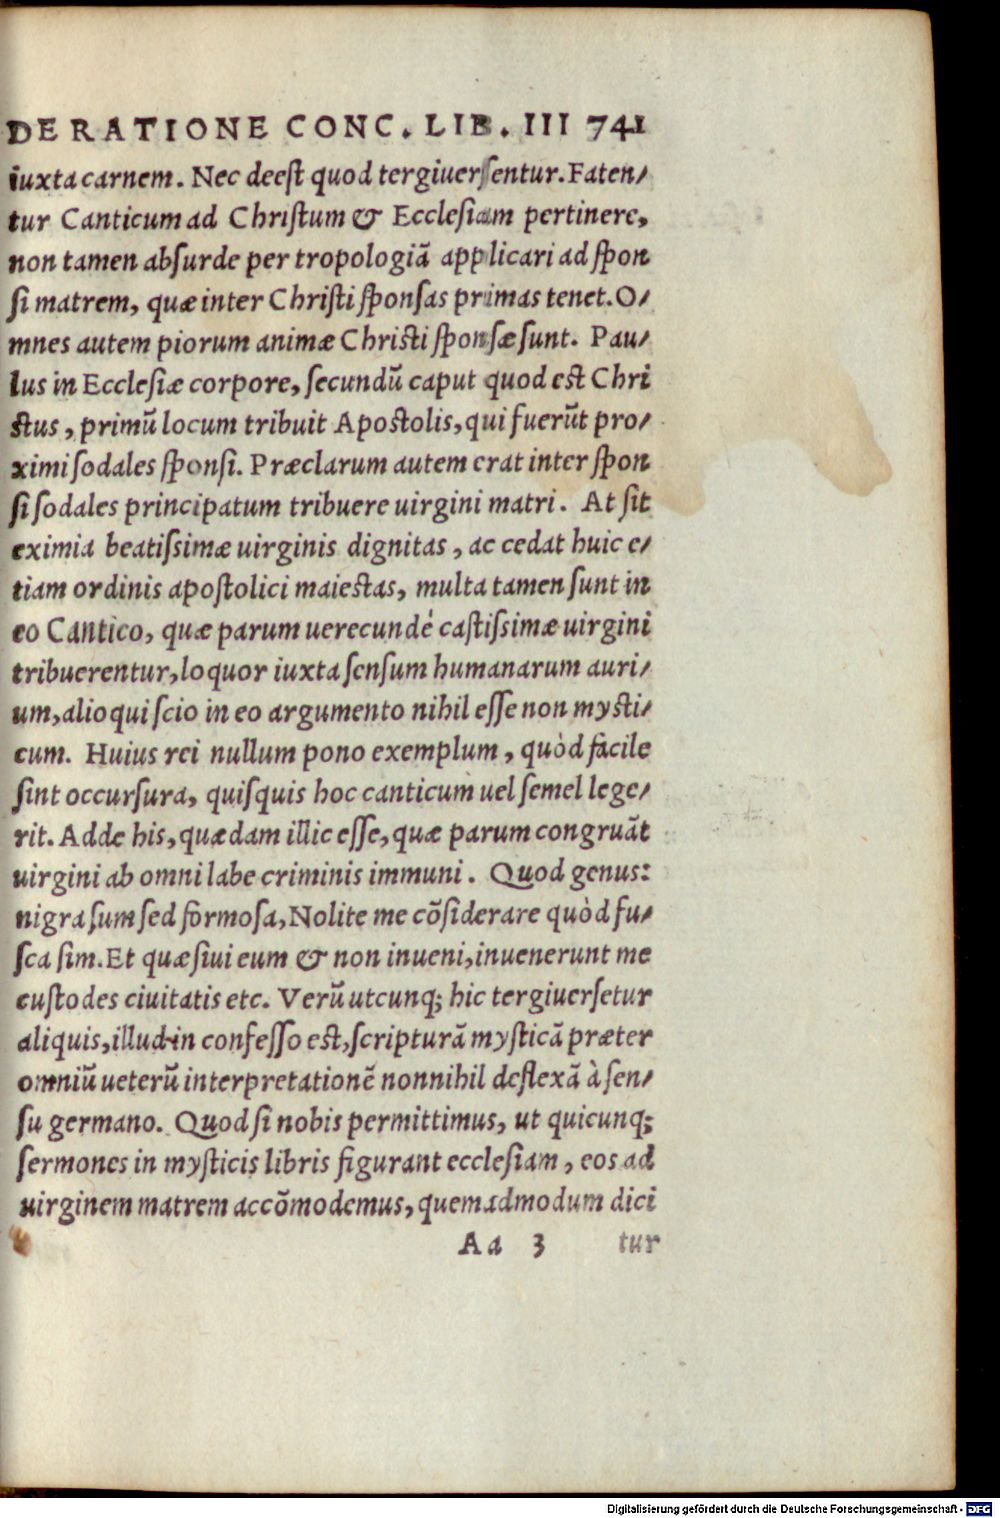 DE RATIONE CONC. LIB. III 741
iuxta carnem. Nec deest quod tergiuersentur. Faten/
tur Canticum ad Christum & Ecclesiam pertinere,
non tamen absurde per tropologiã applicari ad spon
si matrem, quæ inter Christi sponsas primas tenet. O/
mnes autem piorum animæ Christi sponsæ sunt. Pau/
lus in Ecclesiæ corpore, secundũ caput quod est Chri
stus, primũ locum tribuit Apostolis, qui fuerũt pro/
ximi sodales sponsi. Præclarum autem erat inter spon
si sodales principatum tribuere uirgini matri. At sit
eximia beatissimæ uirginis dignitas, ac cedat huic e/
tiam ordinis apostolici maiestas, multa tamen sunt in
eo Cantico, quæ parum uerecundé castissimæ uirgini
tribuerentur, loquor iuxta sensum humanarum auri/
um, alioqui scio in eo argumento nihil esse non mysti/
cum. Huius rei nullum pono exemplum, quòd facile
sint occursura, quisquis hoc canticum uel semel lege/
rit. Adde his, quædam illic esse, quæ parum congruãt
uirgini ab omni labe criminis immuni. Quod genus:
nigra sum sed formosa, Nolite me cõsiderare quòd fu/
sca sim. Et quæsiui eum & non inueni, inuenerunt me
custodes ciuitatis etc. Verũ utcunq; hic tergiuersetur
aliquis, illud in confesso est, scripturã mysticã præter
omniũ ueterũ interpretationẽ nonnihil deflexã à sen/
su germano. Quod si nobis permittimus, ut quicunq;
sermones in mysticis libris figurant ecclesiam, eos ad
uirginem matrem accõmodemus, quemadmodum dici
Aa 3 tur
Digitalisierung gefördert durch die Deutsche Forschungsgemeinschaft - DFG